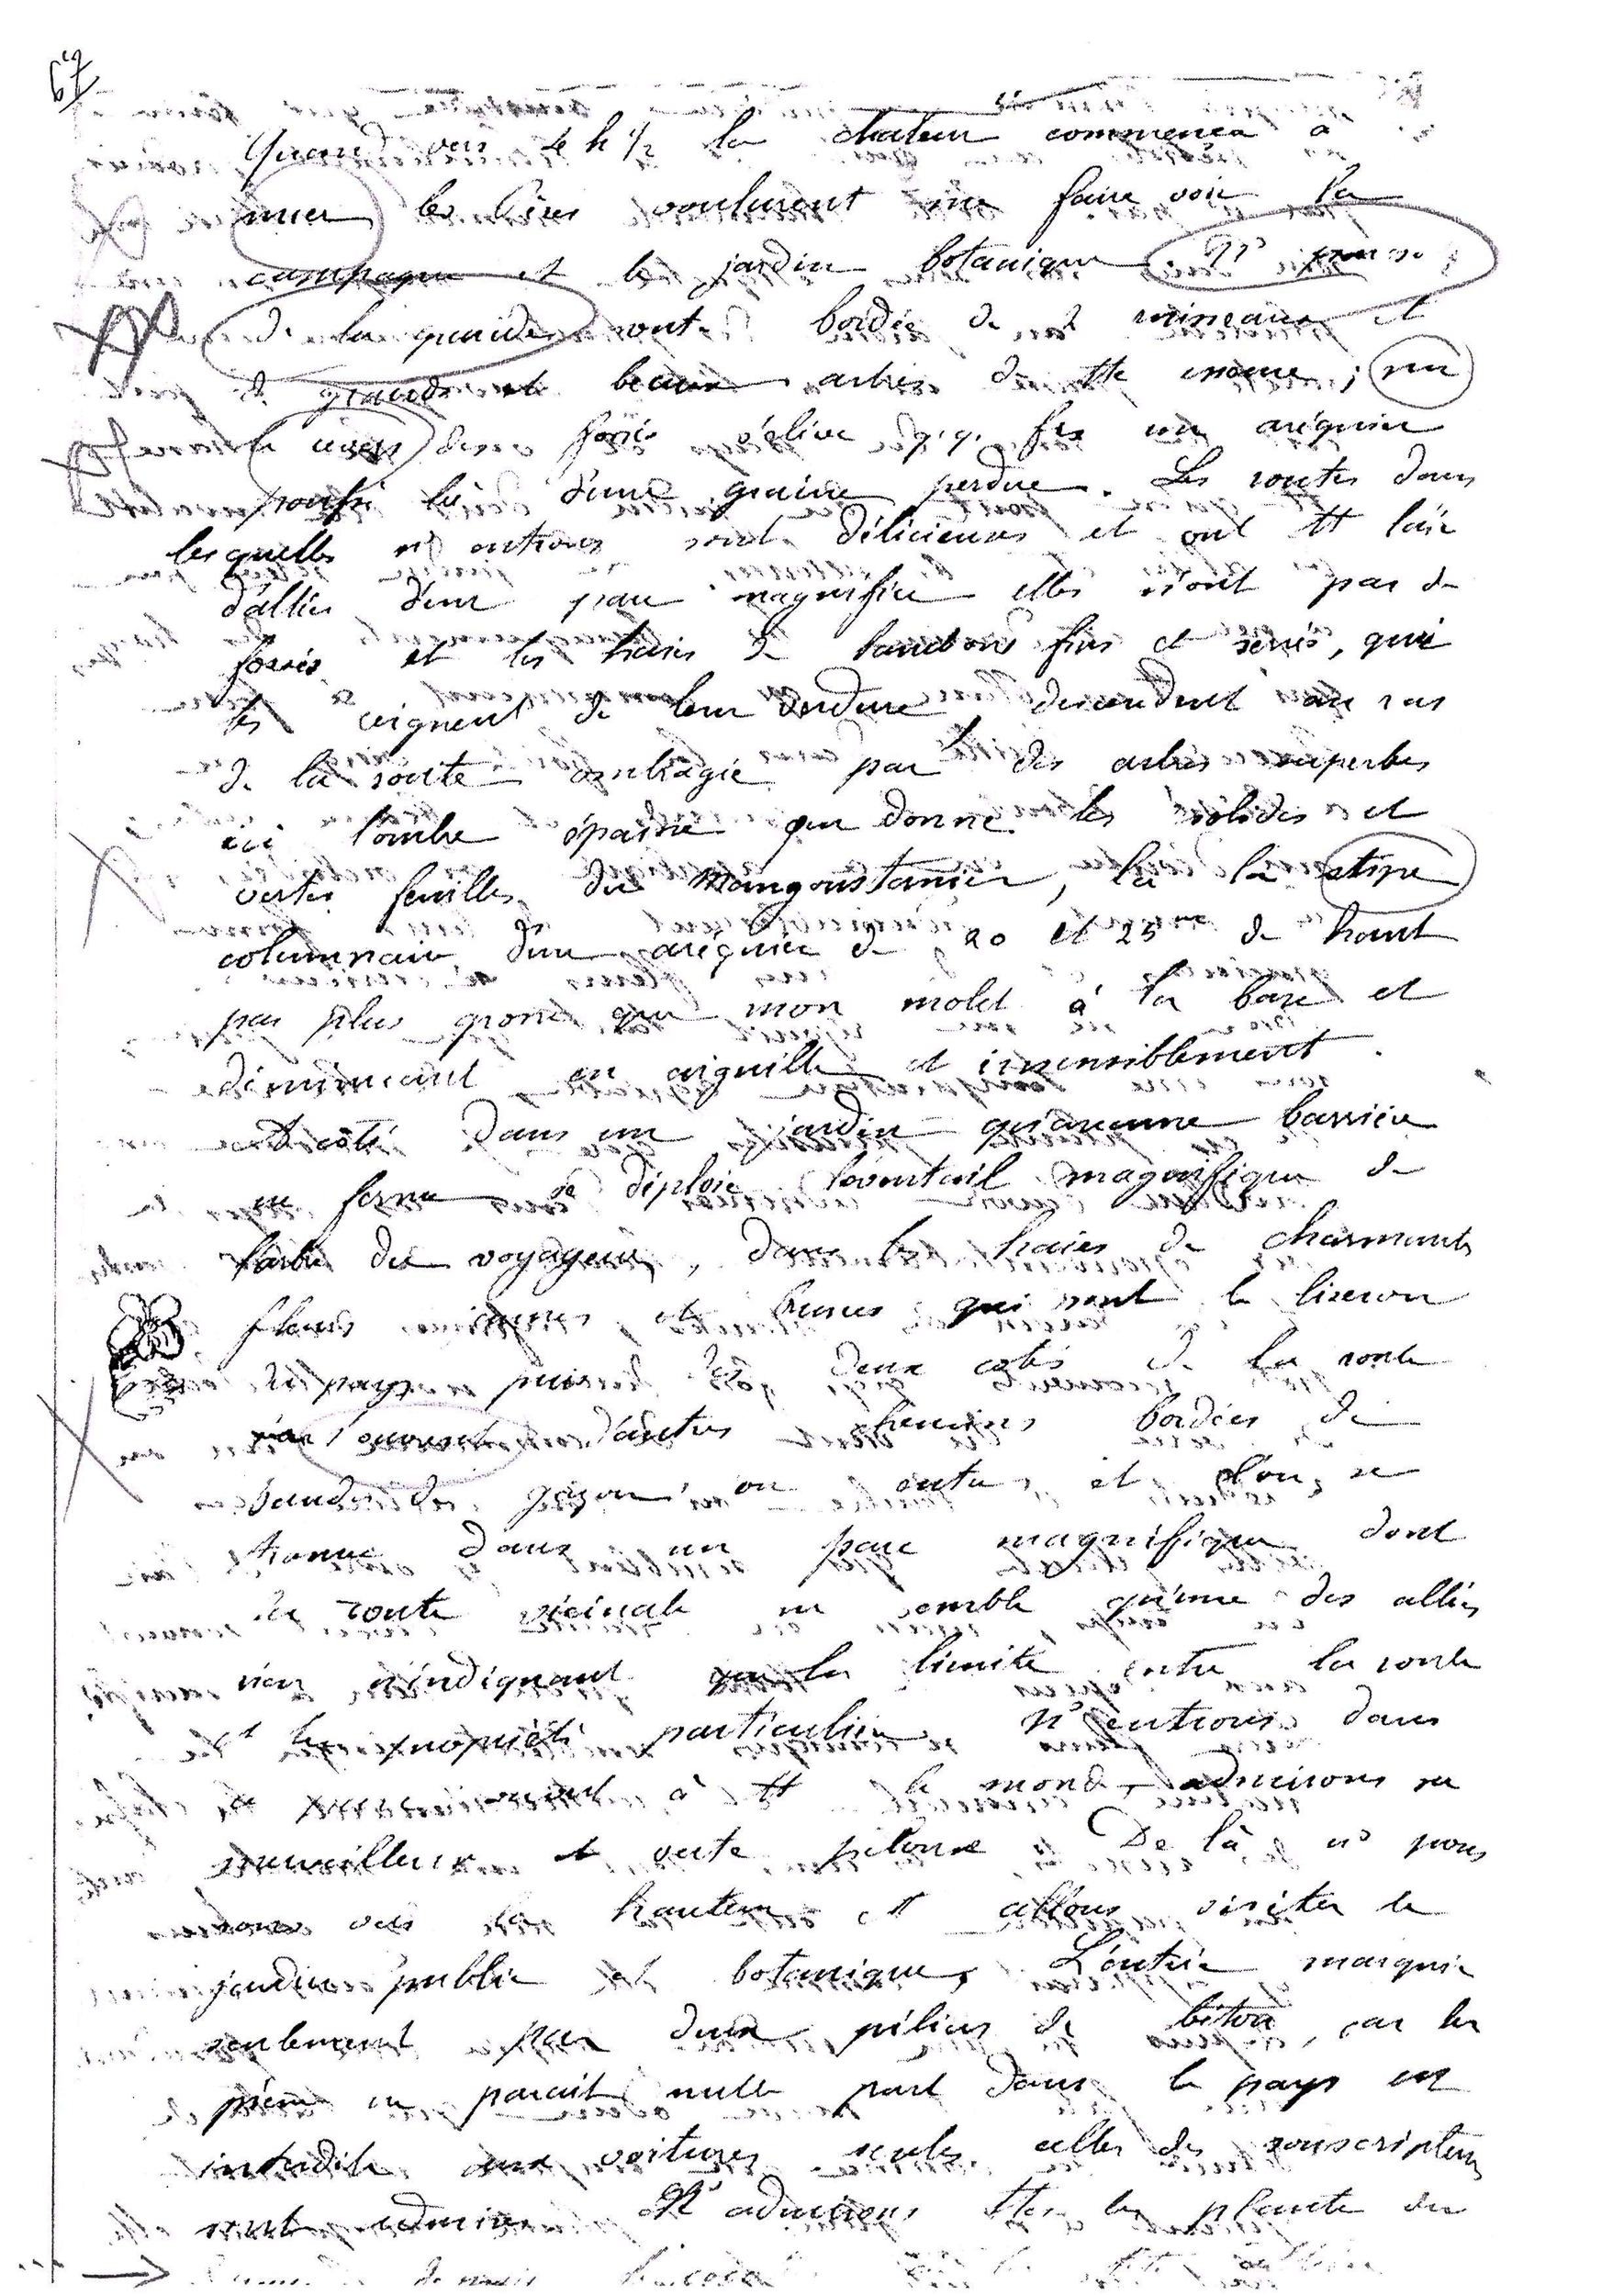 67
Quand vers 4 h 1/2 la chaleur commença à
les Pères voulurent me faire voir la
campagne et le jardin botanique. Ns
de la route bordée de 2 ruisseaux et
de grands et beaux arbres de tte ; sur
le des fossés s'élève q.q. fois un aréquier
poussé là d'une graine perdue. Les routes dans
lesquelles ns entrons sont délicieuses et ont tt l'air
d'allées d'un parc magnifique elles n'ont pas de
fossés et les haies de bambous fins et serrés, qui
les ceignent de leur verdure descendent au ras
de la route ombragée par des arbres superbes
ici l'ombre épaisse que donne les solides et
vertes feuilles du Mangoustanier, là la stipe
columnaire d'un aréquier de 20 et 25 m de haut
pas plus gros que mon molet à la base et
diminuant en aiguille et insensiblement.
A côté dans un jardin qu'aucune barrière
ne ferme se déploie l'éventail magnifique de
l'arbre du voyageur, dans les haies de charmantes
fleurs jaunes et brunes qui sont le liseron
du pays puis des deux cotés de la route
s'ouvrent d'autres chemins bordées de
bandes de gazon, on entre, et l'on se
trouve dans un parc magnifique dont
la route vicinale ne semble qu'une des allées
rien n'indiquant la limite entre la route
et la propriété particulière. Ns entrons dans
le ouvert à tt le monde, admirons sa
merveilleuse et verte pelouse. De là ns pous
sons vers les hauteurs et allons visiter le
jardin public et botanique, L'entrée marquée
seulement par deux piliers de béton, car la
pierre ne parait nulle part dans le pays est
interdite aux voitures, seules celles des souscripteurs
sont admises. Ns admirons ttes les plantes du